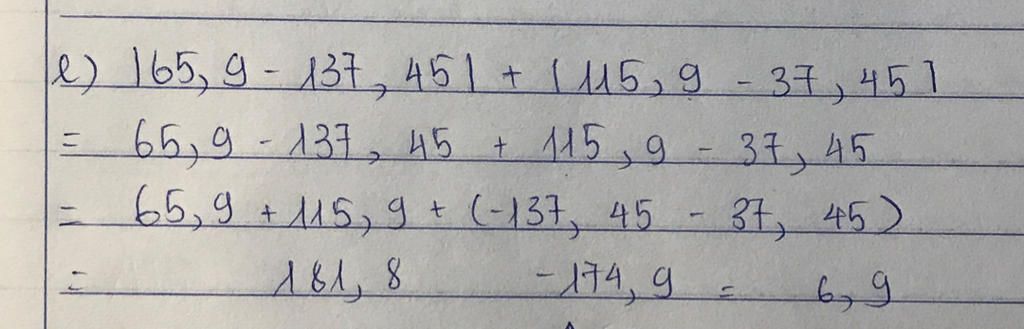 e) |65,9 - 137,45| + |115,9 - 37,45|
= 65,9 - 137,45 + 115,9 - 37,45
= 65,9 + 115,9 + (-137,45 - 37,45)
= 181,8 - 174,9 = 6,9